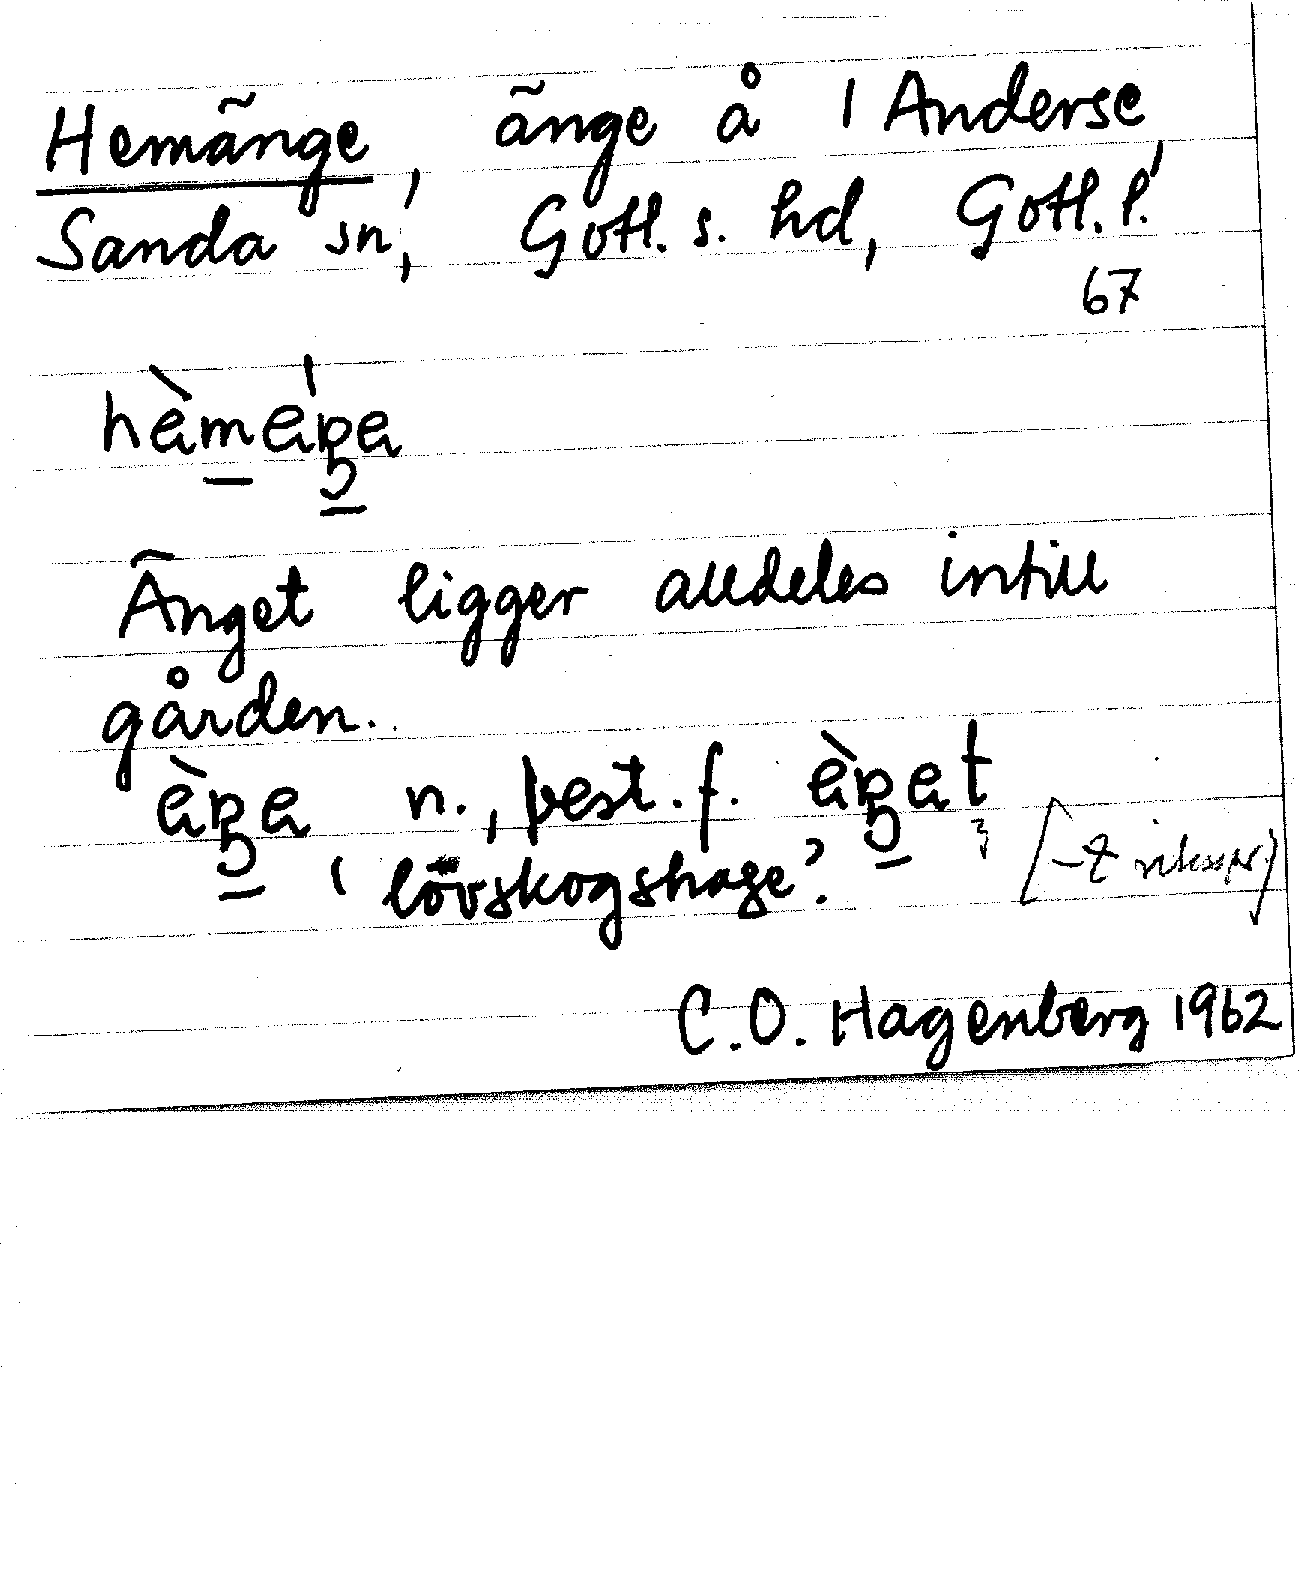 Hemänge, änge å 1 Anderse,
Sanda sn, Gotl. s. hd, Gotl. l.
67
Änget ligger alldeles intill
gården.
n., best. f.
'lövskogshage'.
C.O. Hagenberg 1962